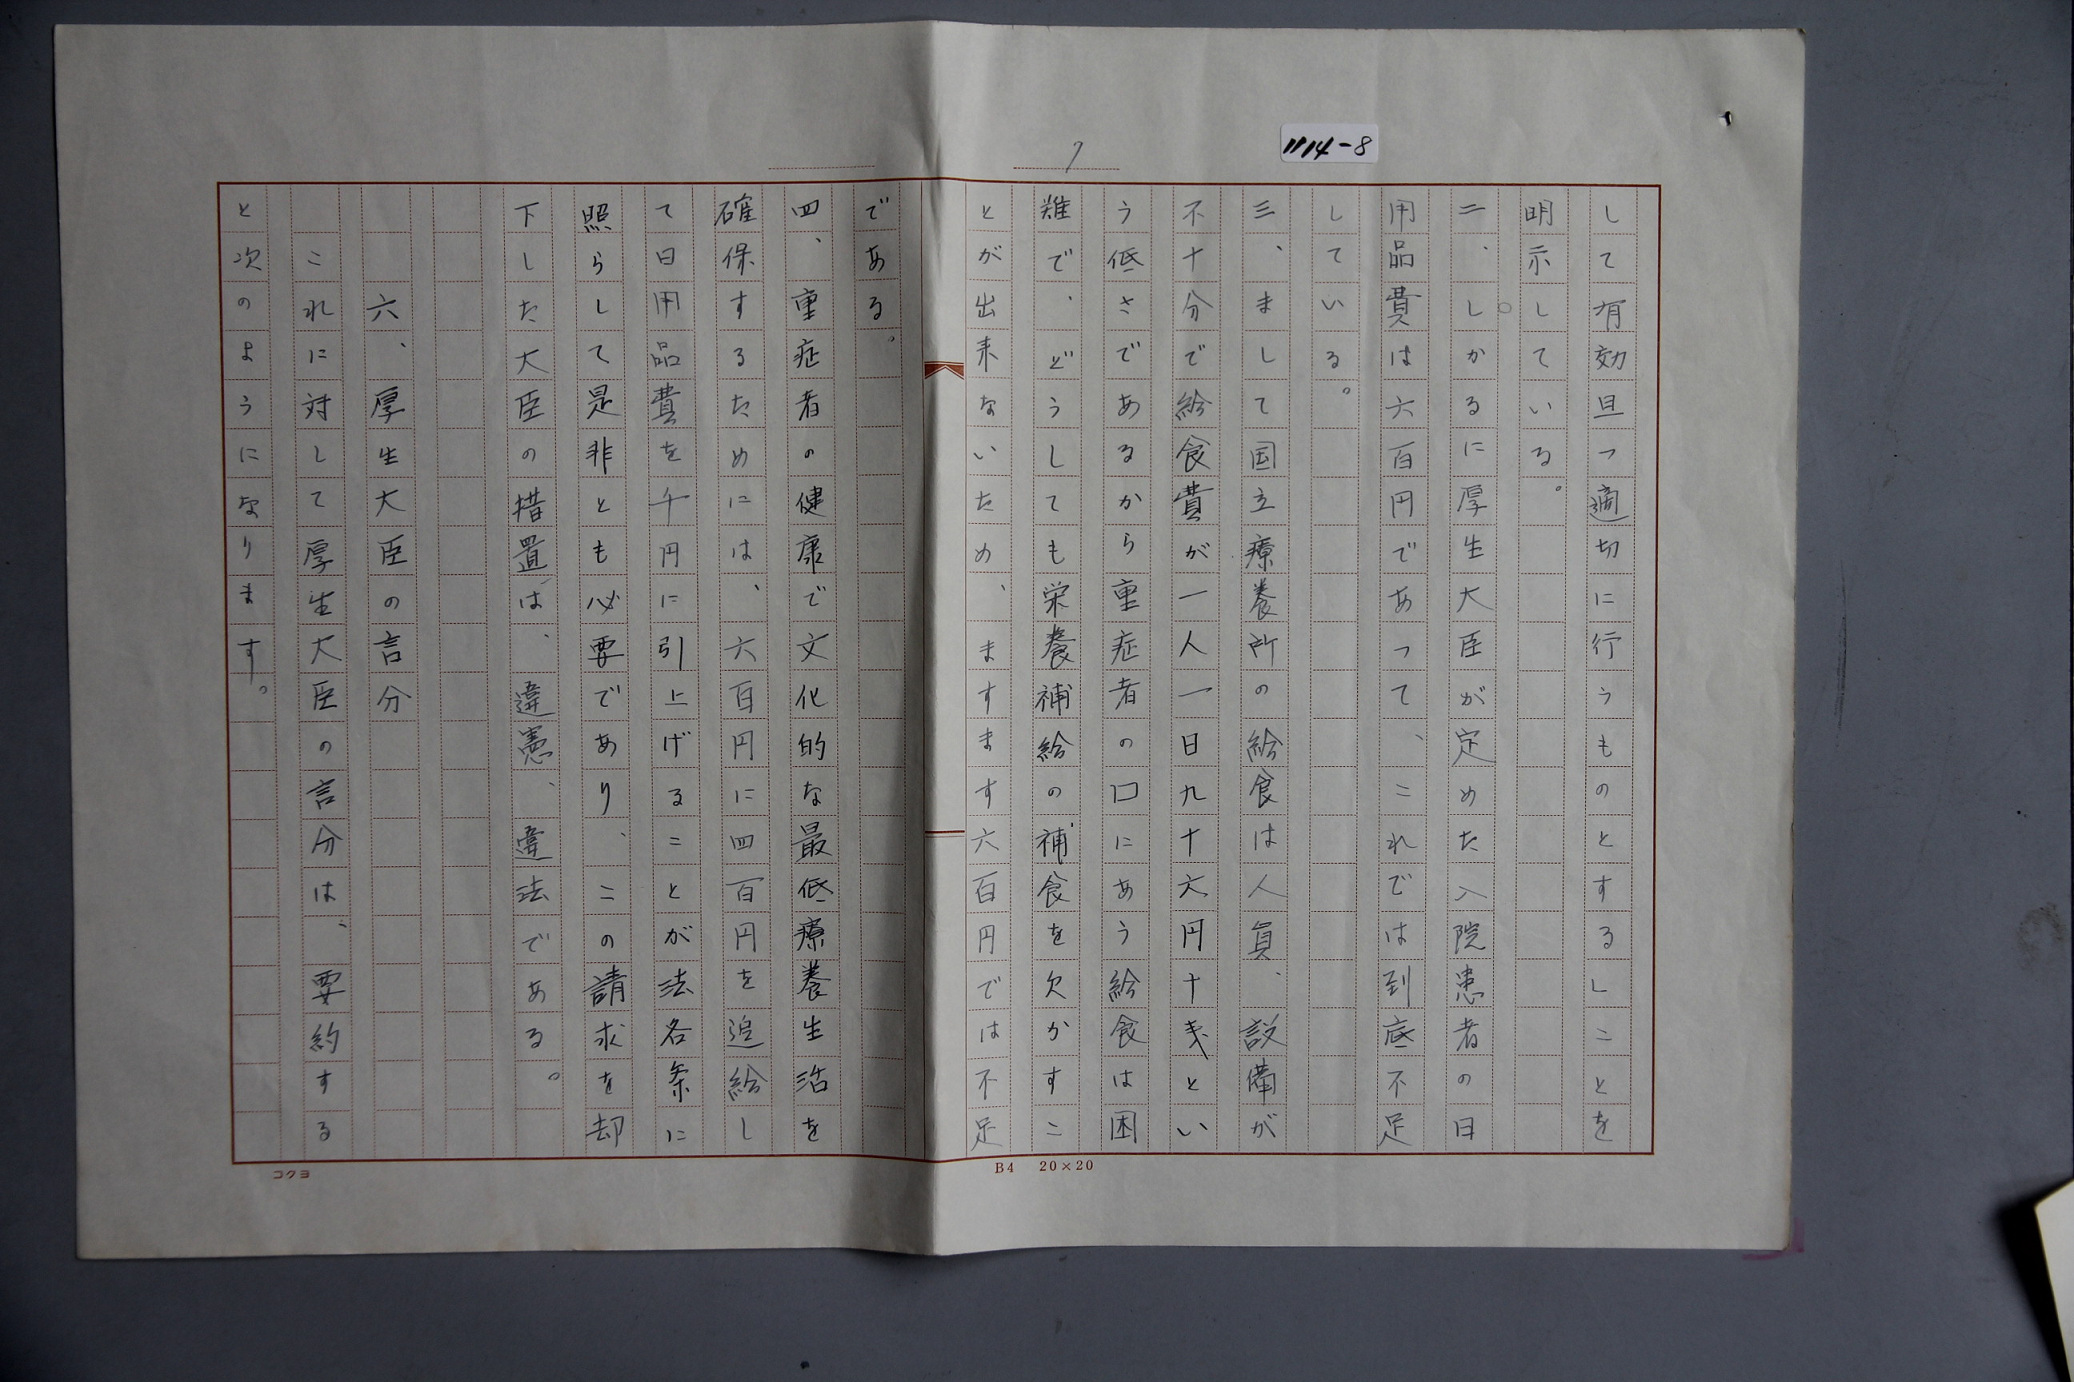 1114-8
7
して有効且つ適切に行うものとする」ことを
明示している。
二、しかるに厚生大臣が定めた入院患者の日
用品費は六百円であって、これでは到底不足
している。
三、まして国立療養所の給食は人員、設備が
不十分で給食費が一人一日九十六円十銭とい
う低さであるから重症者の口にあう給食は困
難で、どうしても栄養補給の補食を欠かすこ
とが出来ないため、ますます六百円では不足
である。
四、重症者の健康で文化的な最低療養生活を
確保するためには、六百円に四百円を追給し
て日用品費を千円に引上げることが法各条に
照らして是非とも必要であり、この請求を却
下した大臣の措置は、違憲、違法である。
六、厚生大臣の言分
これに対して厚生大臣の言分は、要約する
と次のようになります。
B4 20×20
コクヨ